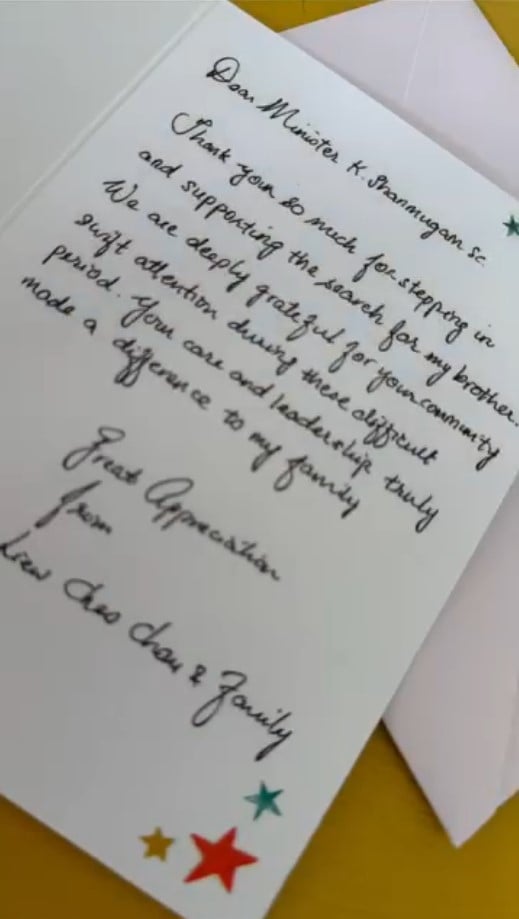 Dear Minister K. Shanmugam sc.
Thank you so much for stepping in
and supporting the search for my brother.
We are deeply grateful for your community
swift attention during these difficult
period. Your care and leadership truly
made a difference to my family
Great Appreciation
from
Liew Chao Chou & Family